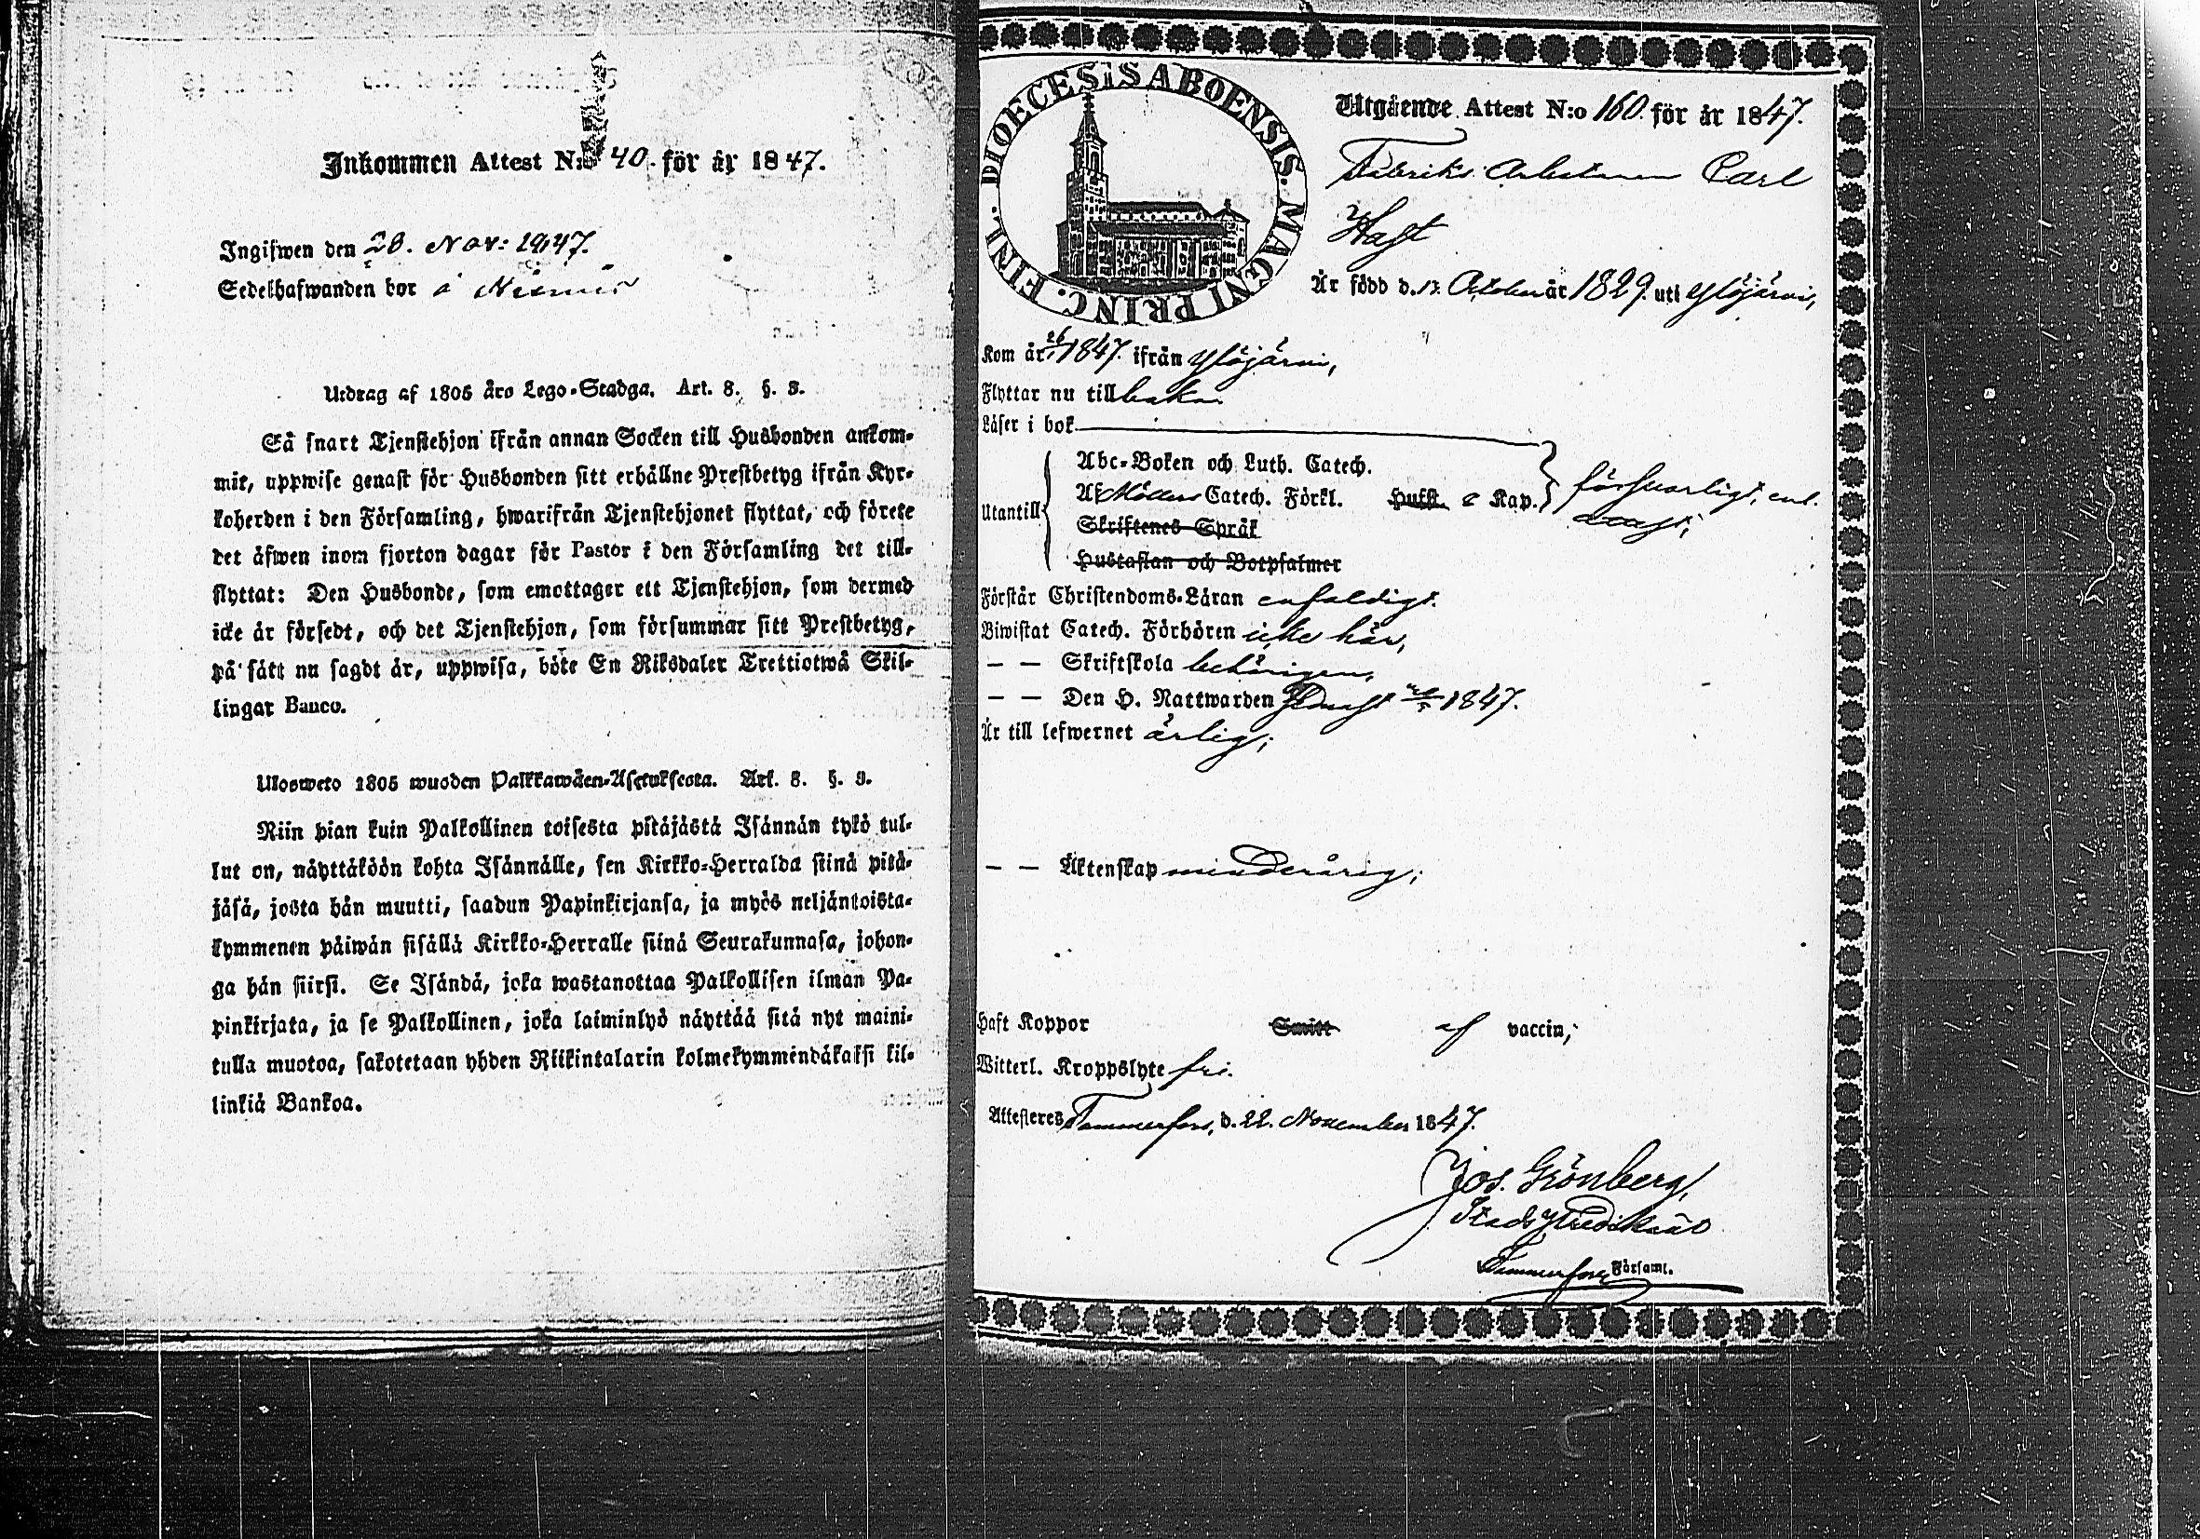 Inkommen Attest N:o 40. för år 1847.
Ingifwen den 28. Nov: 1847.
Sedelhafwanden bor å
Utdrag af 1805 års Lego-Stadga. Art. 8. §. 3.
Så snart Tjenstehjon ifrån annan Socken till Husbonden ankom-
mit, uppwise genast för Husbonden sitt erhållne Prestbetyg ifrån Kyr-
koherden i den Församling, hwarifrån Tjenstehjonet flyttat, och förete
det äfwen inom fjorton dagar för Pastor i den Församling det till-
flyttat: Den Husbonde, som emottager ett Tjenstehjon, som dermed
icke är försedt, och det Tjenstehjon, som försummar sitt Prestbetyg,
på sätt nu sagdt är, uppwisa, böte En Riksdaler Trettiotwå Skil-
lingar Banco.
Uloswето 1805 wuoden Palkkawäen-Asetuksesta. Art. 8. §. 3.
Niin pian kuin Palkollinen toisesta pitäjästä Isännän tykö tul-
lut on, näyttäköön kohta Isännälle, sen Kirkko-Herralda siinä pitä-
jäsä, josta hän muutti, saadun Papinkirjansa, ja myös neljäntoista-
kymmenen päiwän sisällä Kirkko-Herralle siinä Seurakunnasa, johon-
ga hän siirsi. Se Isändä, joka wastanottaa Palkollisen ilman Pa-
pinkirjata, ja se Palkollinen, joka laiminlyö näyttää sitä nyt maini-
tulla muotoa, sakotetaan yhden Riikintalarin kolmekymmendäkaksi kil-
linkiä Bankoa.
DIOECESIS ABOENSIS. MAGNI PRINC. FINL.
Utgående Attest N:o 160. för år 1847.
Fabriks Arbetaren Carl
Hast
Är född d. 13. October år 1829. uti Ylöjärvi,
Kom år 1847. ifrån Ylöjärvi,
Flyttar nu tillbaka.
Läser i bok
Abc-Boken och Luth. Catech.
Utantill Af Möllers Catech. Förkl. Husst. Kap. försvarligt,
Skriftenes Språk
Hustaflan och Botpsalmer
Förstår Christendoms-Läran enfaldigt.
Biwistat Catech. Förhören icke här,
— — Skriftskola behörigen,
— — Den H. Nattwarden 1847.
Är till lefwernet ärlig;
— — Äktenskap minderårig;
Haft Koppor Smitt af vaccin;
Witterl. Kroppslyte fri.
Attesteres Tammerfors, d. 22. November 1847.
Jos. Grönberg,
Stads Predikant
Tammerfors Församl.